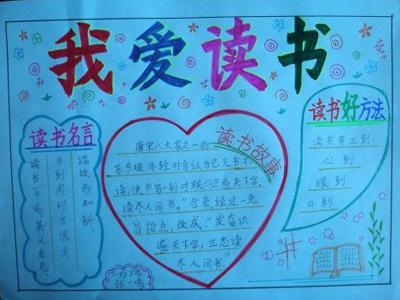 我爱读书
读书名言
温故而知新。
书到用时方恨少
读书百遍,其义自见。
读书故事
唐宋八大家之一的
苏东坡年轻时自认为已无书不
读,便书写一副对联"识遍天下字,
读尽人间书。"后来经过一老
翁指点,改成:"发奋识
遍天下字,立志读
尽人间书。"
读书好方法
读书有三到:
心到
眼到
口到